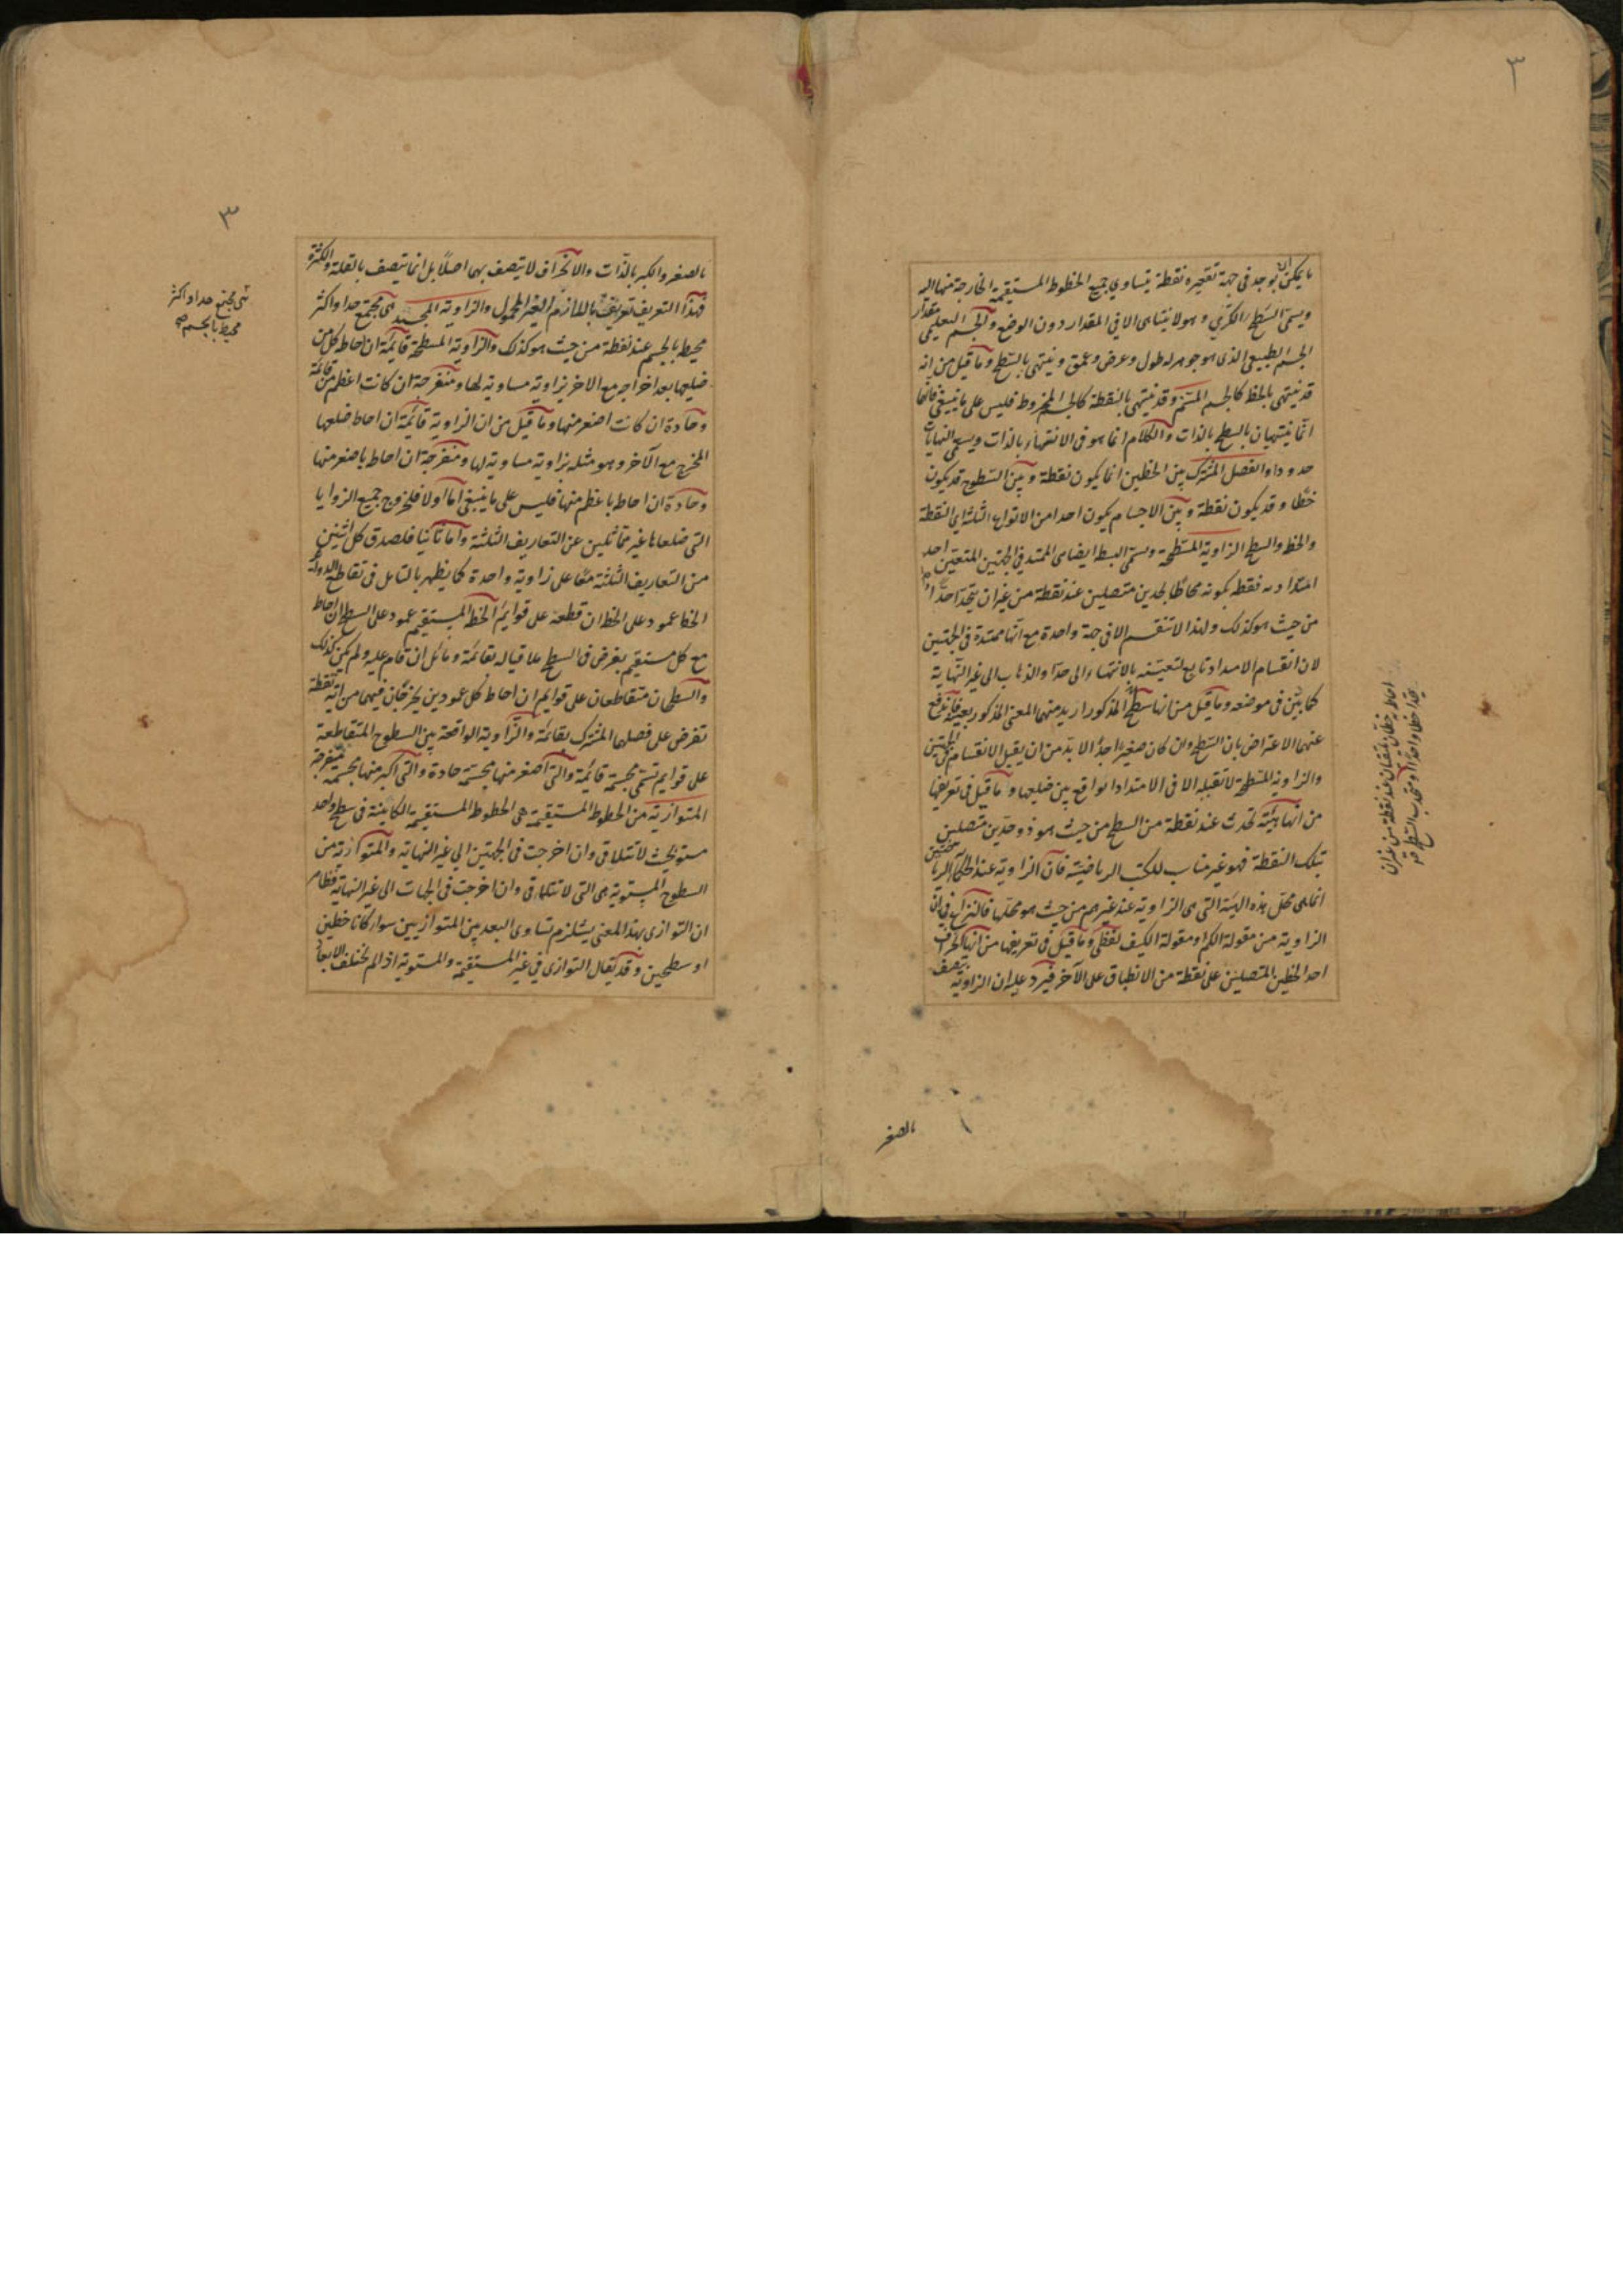 ٣
ما يمكن ان يوجد في جهة تقعيره نقطة يتساوي جميع الخطوط المستقيمة الخارجة منها اليه
ويسمى السطح الكري وهو لا يتناهى الا في المقدار دون الوضع والجسم التعليمي مقدار
الجسم الطبيعي الذي هو جوهر له طول وعرض وعمق وينتهي بالسطح وما قيل من انه
قد ينتهي بالخط كالجسم المسنم وقد ينتهي بالنقطة كالجسم المخروط فليس على ما ينبغي فانهما
انما ينتهيان بالسطح بالذات والكلام انما هو في الانتهاء بالذات ويسمى النهايات
حدودا والفصل المشترك بين الخطين انما يكون نقطة وبين السطوح قد يكون
خطا وقد يكون نقطة وبين الاجسام يكون احدا من الانواع الثلثة اي النقطة
والخط والسطح الزاوية المسطحة وتسمى البسيطة ايضا هي الممتد في الجهتين المتعين احد
امتداديه فقط بكونه محاطا بحدين متصلين عند نقطة من غير ان يتحدا حدا
من حيث هو كذلك ولهذا لا تنقسم الا في جهة واحدة مع انها ممتدة في الجهتين
لان انقسام الامتداد تابع لتعينه بالانتهاء الى حد او الذهاب الى غير النهاية
كما بين في موضعه وما قيل من انها سطح المذكور اريد منهما المعنى المذكور بعينه فاندفع
عنهما الاعتراض بان السطح وان كان صغيرا جدا لا بد من ان يقبل الانقسام في الجهتين
والزاوية المسطحة لا تقبله الا في الامتداد الواقع بين ضلعيها وما قيل في تعريفها
من انها هيئة تحدث عند نقطة من السطح من حيث هو ذو حدين متصلين
بتلك النقطة فهو غير مناسب للكتب الرياضية فان الزاوية عند الحكماء الرياضيين
انما هي محل هذه الهيئة التي هي الزاوية عند غيرهم من حيث هو محلها فالنزاع في ان
الزاوية من مقولة الكم او مقولة الكيف لفظي وما قيل في تعريفها من انها انحراف
احد الخطين المتصلين على نقطة من الانطباق على الآخر فيرد عليه ان الزاوية يتصف
بالصغر
٣
بالصغر والكبر بالذات والانحراف لا يتصف بهما اصلا بل انما يتصف بالقلة والكثرة
فهذا التعريف تعريف باللازم الغير المحمول والزاوية المجسمة هي مجمع حدا واكثر
محيط بالجسم عند نقطة من حيث هو كذلك والزاوية المسطحة قائمة ان احاط كل من
ضلعيها بعد اخراجه مع الاخر بزاوية مساوية لها ومنفرجة ان كانت اعظم من قائمة
وحادة ان كانت اصغر منها وما قيل من ان الزاوية قائمة ان احاط ضلعها
المخرج مع الآخر وهو مثله بزاوية مساوية لها ومنفرجة ان احاط باصغر منها
وحادة ان احاط باعظم منها فليس على ما ينبغي اما اولا فلخروج جميع الزوايا
التي ضلعاها غير متماثلين عن التعاريف الثلثة واما ثانيا فلصدق كل اثنين
من التعاريف الثلثة معا على زاوية واحدة كما يظهر بالتامل في تقاطع الدوائر
الخط عمود على الخط ان قطعه على قوايم الخط المستقيم عمود على السطح ان احاط
مع كل مستقيم يفرض في السطح ملاقيا له بقائمة ومائل ان قام عليه ولم يكن كذلك
والسطحان متقاطعان على قوايم ان احاط كل عمودين يخرجان فيهما من اية نقطة
تفرض على فصلهما المشترك بقائمة والزاوية الواقعة بين السطوح المتقاطعة
على قوايم تسمى مجسمة قائمة والتي اصغر منها مجسمة حادة والتي اكبر منها مجسمة منفرجة
المتوازية من الخطوط المستقيمة هي الخطوط المستقيمة الكاينة في سطح واحد
مستو بحيث لا تتلاقى وان اخرجت في الجهتين الي غير النهاية والمتوازية من
السطوح المستوية هي التي لا تتلاقى وان اخرجت في الجهات الى غير النهاية فظاهر
ان التوازي بهذا المعنى يستلزم تساوي البعد بين المتوازيين سواء كانا خطين
او سطحين وقد يقال التوازي في غير المستقيمة والمستوية اذا لم تختلف الابعاد
مجمع حدا واكثر
محيط بالجسم